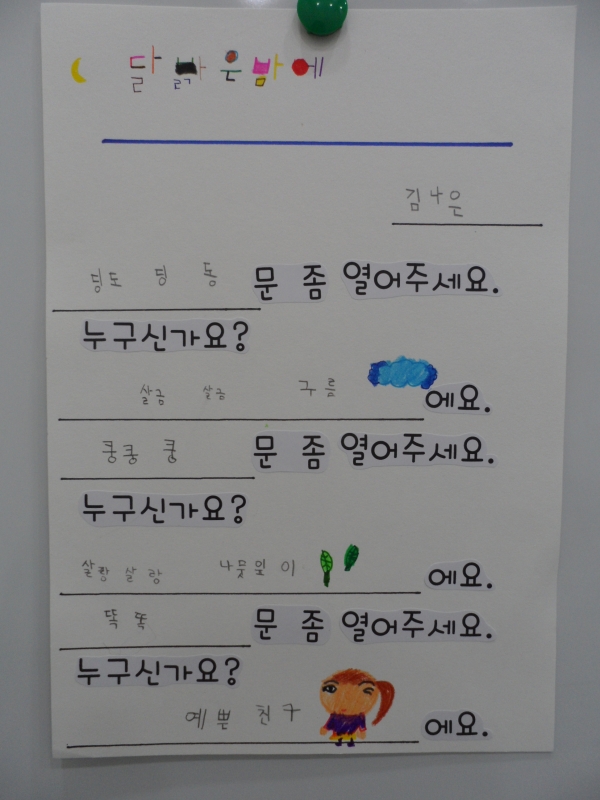 달 밝은 밤에
김나은
딩도 딩 동 문 좀 열어주세요.
누구신가요?
살금 살금 구름 에요.
쿵쿵 쿵 문 좀 열어주세요.
누구신가요?
살랑 살랑 나뭇잎 이 에요.
똑 똑 문 좀 열어주세요.
누구신가요?
예쁜 친구 에요.